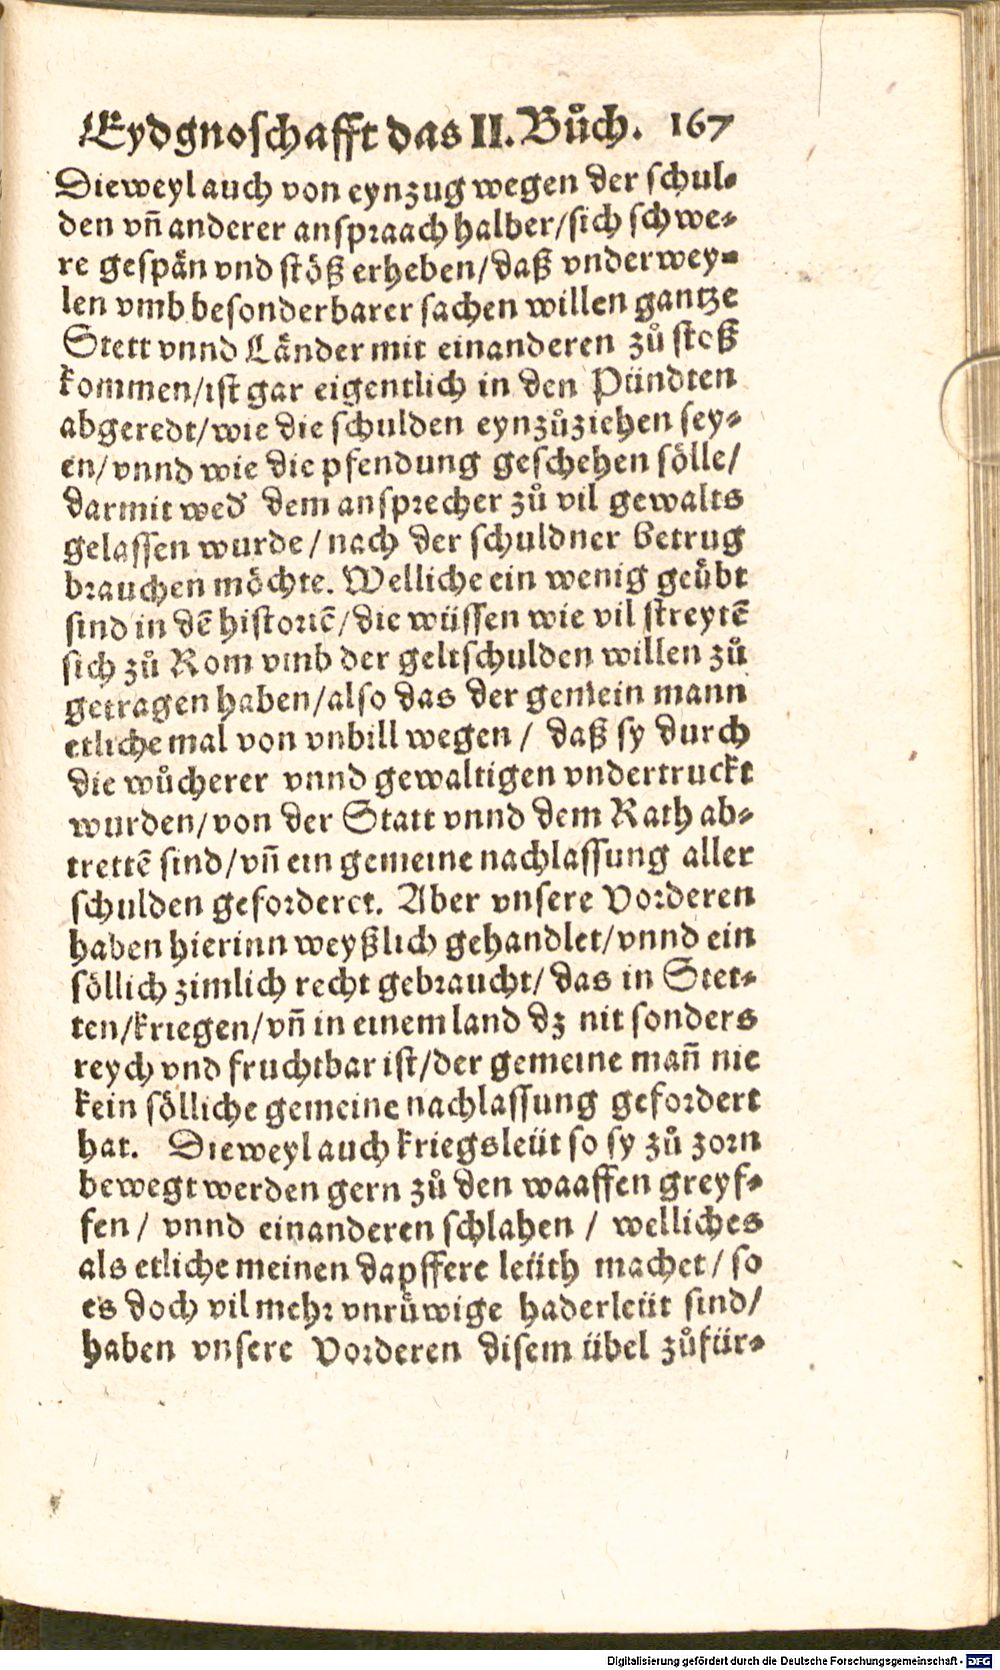 Eydgnoschafft das II. Bůch. 167
Dieweyl auch von eynzug wegen der schul-
den vñ anderer anspraach halber/sich schwe-
re gespän vnd stöß erheben/daß vnderwey-
len vmb besonderbarer sachen willen gantze
Stett vnnd Länder mit einanderen zů stoß
kommen/ist gar eigentlich in den Pündten
abgeredt/wie die schulden eynzůziehen sey-
en/vnnd wie die pfendung geschehen sölle/
darmit wed' dem ansprecher zů vil gewalts
gelassen wurde/nach der schuldner betrug
brauchen möchte. Welliche ein wenig geübt
sind in dē historiē/die wüssen wie vil streytē
sich zů Rom vmb der geltschulden willen zů
getragen haben/also das der gemein mann
etliche mal von vnbill wegen/ daß sy durch
die wůcherer vnnd gewaltigen vndertruckt
wurden/von der Statt vnnd dem Rath ab-
trettē sind/vñ ein gemeine nachlassung aller
schulden geforderet. Aber vnsere Vorderen
haben hierinn weyßlich gehandlet/vnnd ein
söllich zimlich recht gebraucht/das in Stet-
ten/kriegen/vñ in einem land dz nit sonders
reych vnd fruchtbar ist/der gemeine mañ nie
kein sölliche gemeine nachlassung gefordert
hat. Dieweyl auch kriegsleüt so sy zů zorn
bewegt werden gern zů den waaffen greyf-
fen/ vnnd einanderen schlahen/ welliches
als etliche meinen dapffere leüth machet/so
es doch vil mehr vnrůwige haderleüt sind/
haben vnsere Vorderen disem übel zůfür-
Digitalisierung gefördert durch die Deutsche Forschungsgemeinschaft - DFG